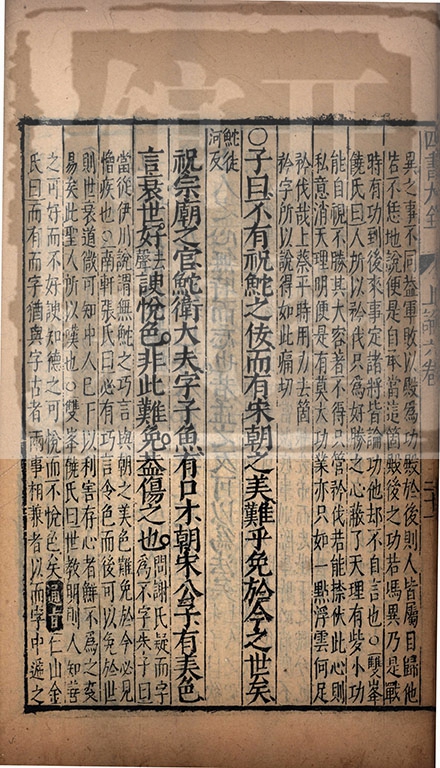 四書大全 論六卷
異之事不同葢軍敗以殿為功殿於後則人皆屬目歸他
若不恁地說便是自承當這箇殿後之功若馮異乃是戰
時有功到後來事定諸將皆論功他却不自言也○雙峯
饒氏曰人所以矜伐只為好勝之心蔽了天理有些小功
能自視不勝其大容著不得只管矜伐若能捺伏此心則
私意消天理明便是有莫大功業亦只如一點浮雲何足
矜伐哉上蔡平時用力去箇
矜字所以說得如此痛切
○子曰不有祝鮀之佞而有宋朝之美難乎免於今之世矣
鮀徒
河反
祝宗廟之官鮀衛大夫字子魚有口才朝宋公子有美色
言衰世好去聲諛悅色非此難免葢傷之也問謝氏疑而字
為不字朱子曰
當從伊川說謂無鮀之巧言與朝之美色難免於今必見
憎疾也○南軒張氏曰必有巧言令色而後可以免於世
則世衰道微可知中人已下以利害存心者鮮不為之變
易矣此聖人所以嘆也○雙峯饒氏曰世教明則人知善
之可好而不好諛知德之可悅而不悅色矣通旨仁山金
氏曰而有而字猶與字古者兩事相兼者以而字中遞之